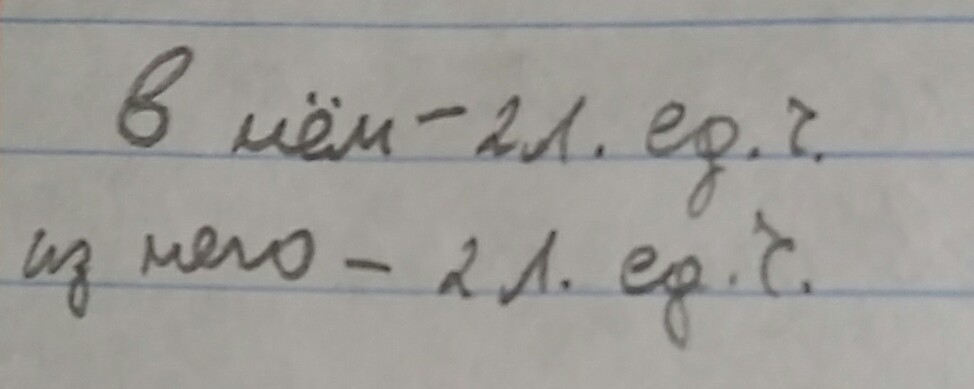 В нём - 2 л. ед. ч.
из него - 2 л. ед. ч.